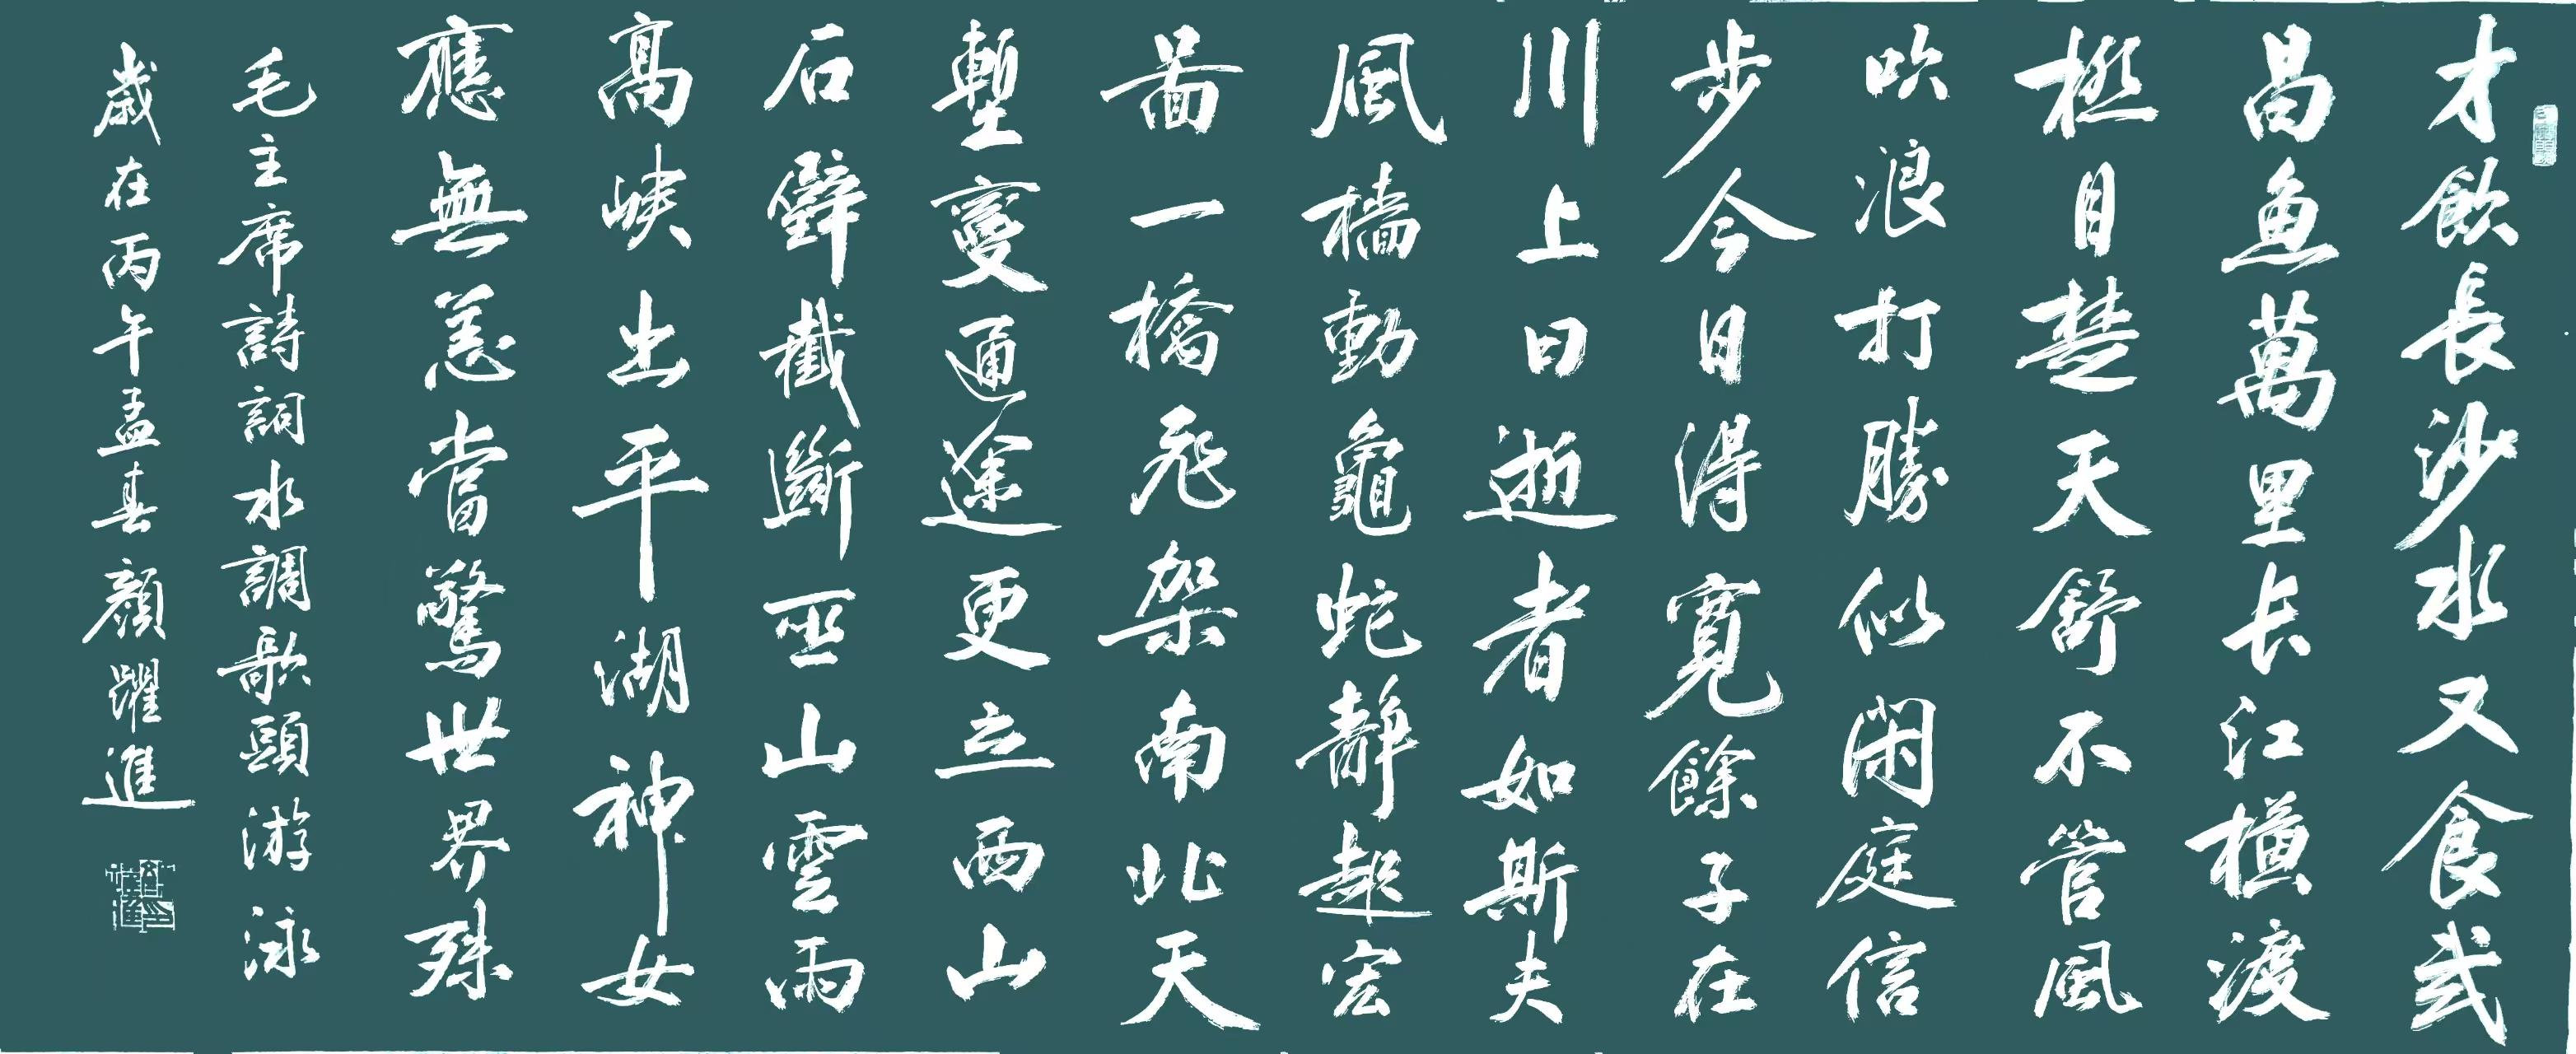 才飲長沙水又食武
昌魚萬里长江橫渡
極目楚天舒不管風
吹浪打勝似閑庭信
步今日得寬餘子在
川上曰逝者如斯夫
風檣動龜蛇靜起宏
啚一橋飛架南北天
塹變通途更立西山
石壁截斷巫山雲雨
高峽出平湖神女
應無恙當驚世界殊
毛主席詩詞水調歌頭游泳
歲在丙午孟春顏躍進